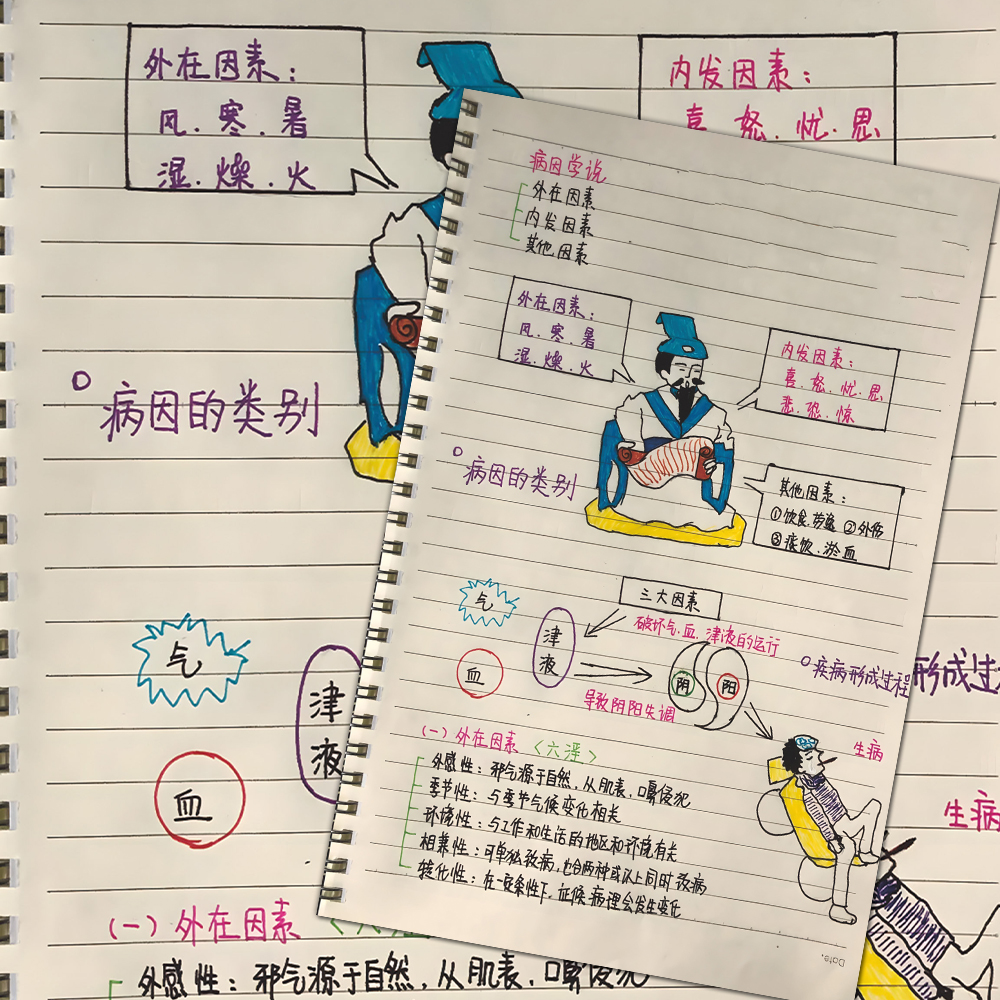 外在因素：
风、寒、暑
湿、燥、火
内发因素：
喜、怒、忧、思
病因的类别
气
津
液
血
(一)外在因素 <六
外感性：邪气源于自然，从肌表，口鼻侵犯
形成过
生病
病因学说
外在因素
内发因素
其他因素
外在因素：
风、寒、暑
湿、燥、火
内发因素：
喜、怒、忧、思
悲、恐、惊
病因的类别
其他因素：
①饮食、劳逸 ②外伤
③痰饮、淤血
气
三大因素
破坏气、血、津液的运行
津
液
血
阴
阳
疾病形成过程
导致阴阳失调
生病
(一)外在因素 <六淫>
外感性：邪气源于自然，从肌表，口鼻侵犯
季节性：与季节气候变化相关
环境性：与工作和生活的地区和环境有关
相兼性：可单独致病，也合两种或以上同时致病
转化性：在一定条件下，证候病理会发生变化
Date.